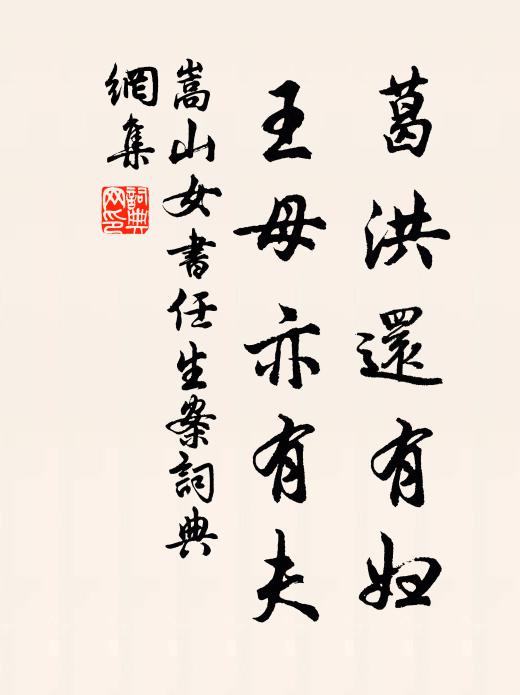 葛洪還有婦
王母亦有夫
嵩山女書任生案詞典
網集
詞典網印